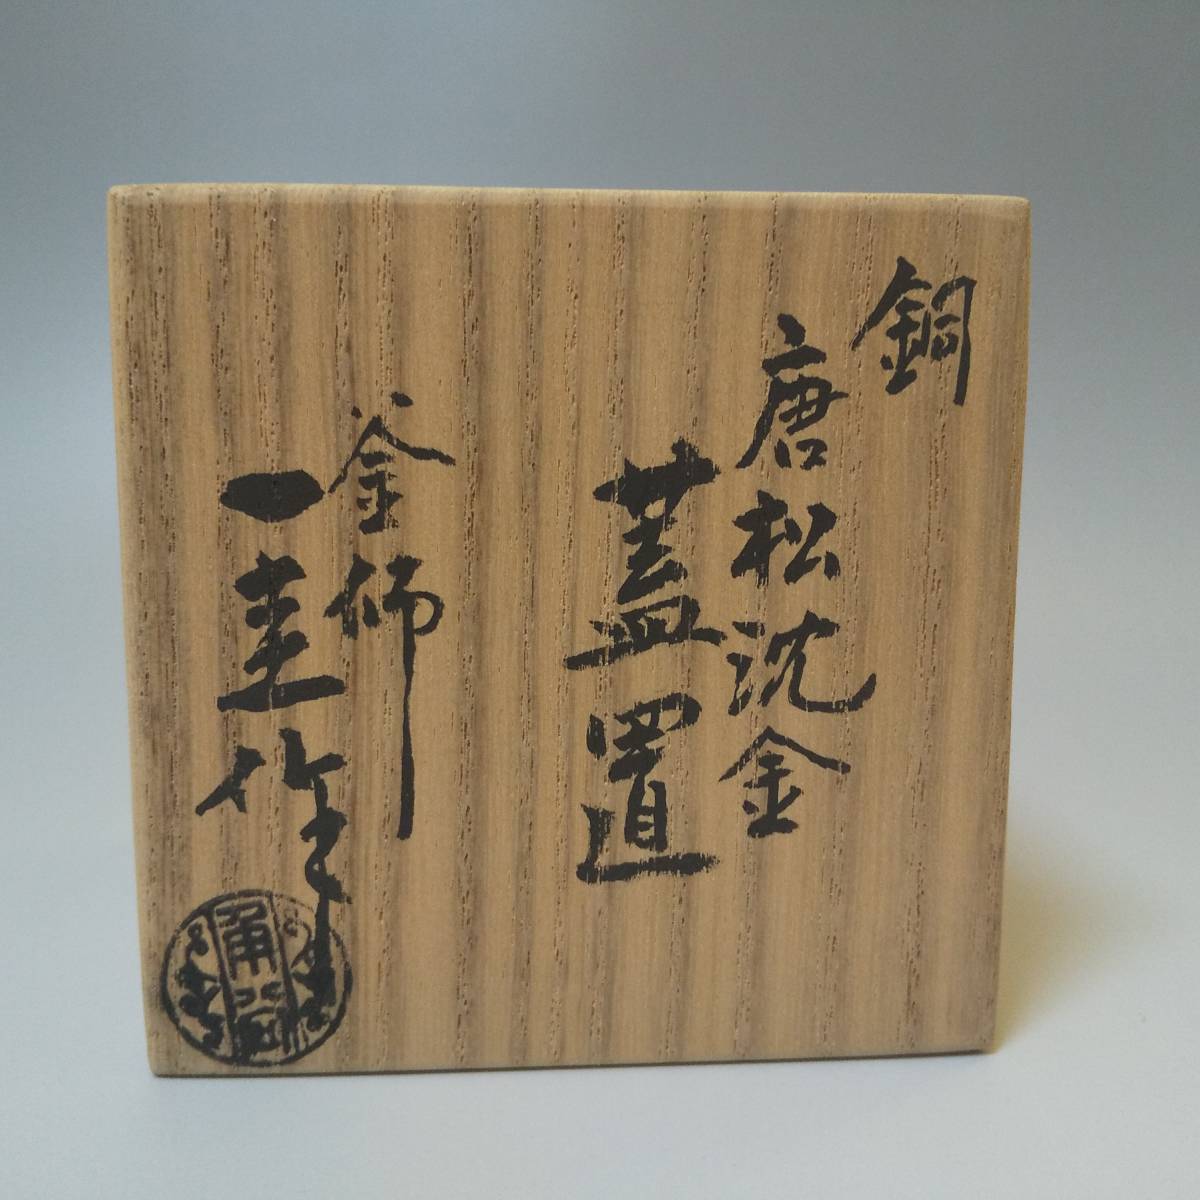 銅
唐松沈金
蓋置
釜師
一圭作